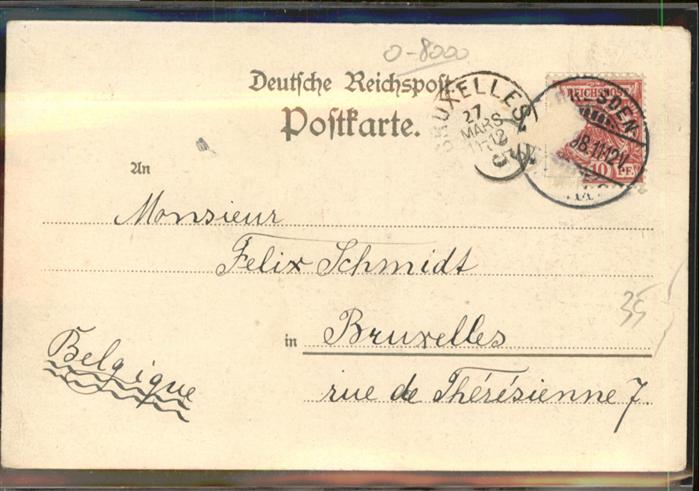 0-8000
Deutsche Reichspost
Postkarte.
BRUXELLES
27
MARS
11-12
5
REICHSPOST
DRESDEN
98.11-12V.
10 PF.
An
Monsieur
Felix Schmidt
in Bruxelles
rue de Thérésienne 7.
Belgique
35